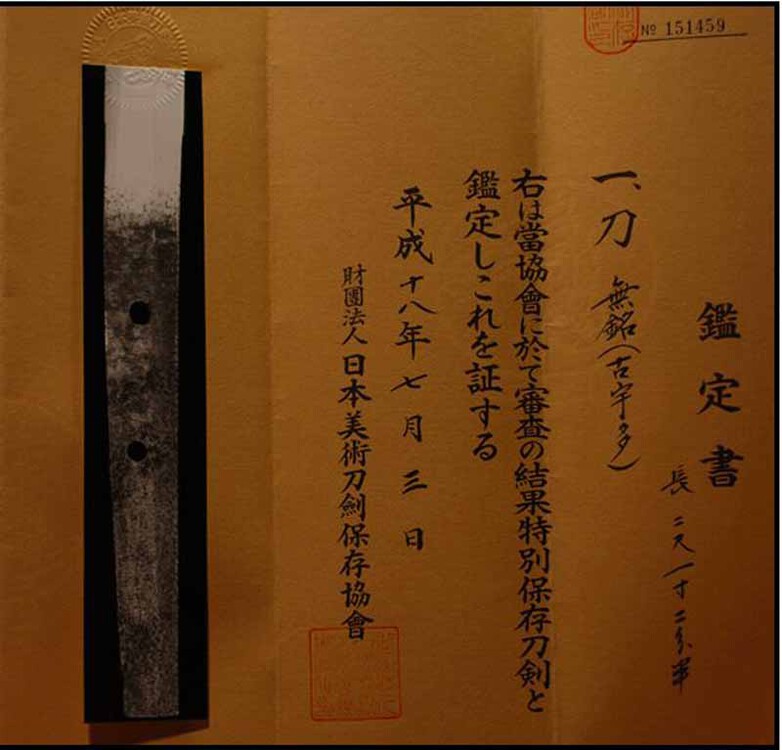 № 151459
鑑定書
長 二尺一寸二分半
一、刀 無銘(古宇多)
右は當協會に於て審査の結果特別保存刀剣と
鑑定しこれを証する
平成十八年七月三日
財團法人日本美術刀劍保存協會